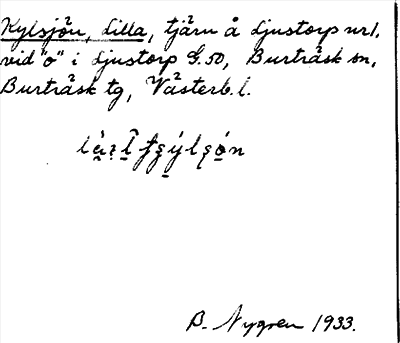 Kylsjön, Lilla, tjärn å Ljustorp nr 1,
vid "o" i Ljustorp G.50, Burträsk sn,
Burträsk tg, Västerb. l.
B. Nygren 1933.